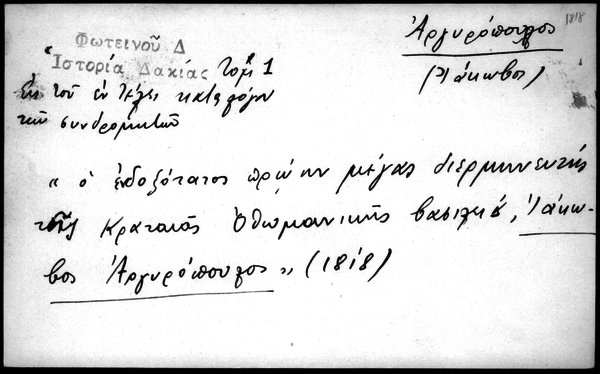 1818
Ἀργυρόπουλος
(Ἰάκωβος)
Φωτεινοῦ Δ
"Ἱστορία Δακίας Τομ. 1
Ἐκ τοῦ ἐν τέλει καταλόγου
τῶν συνδρομητῶν
"ὁ ἐνδοξότατος πρώην μέγας διερμηνευτής
τῆς Κραταιᾶς Ὀθωμανικῆς βασιλείας, Ἰάκω-
βος Ἀργυρόπουλος" (1818)